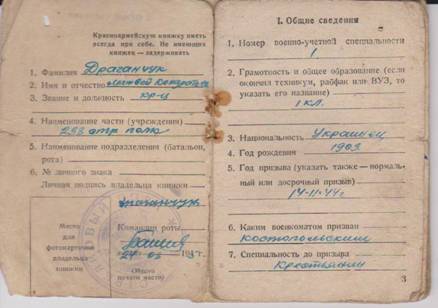 Красноармейскую книжку иметь
всегда при себе. Не имеющих
книжек — задерживать
1. Фамилия Драганчук
2. Имя и отчество
3. Звание и должность кр-ц
4. Наименование части (учреждения)
стр. полк
5. Наименование подразделения (батальон,
рота)
6. № личного знака
Личная подпись владельца книжки
Драганчук
Место
для
фотокарточки
владельца
книжки
Командир роты
24 03 194 г.
(Место
печати части)
I. Общие сведения
1. Номер военно-учетной специальности
1
2. Грамотность и общее образование (если
окончил техникум, рабфак или ВУЗ, то
указать его название)
1 кл.
3. Национальность Украинец
4. Год рождения 1903
5. Год призыва (указать также — нормаль-
ный или досрочный призыв)
14-11-44г.
6. Каким военкоматом призван
7. Специальность до призыва
Крестьянин
3